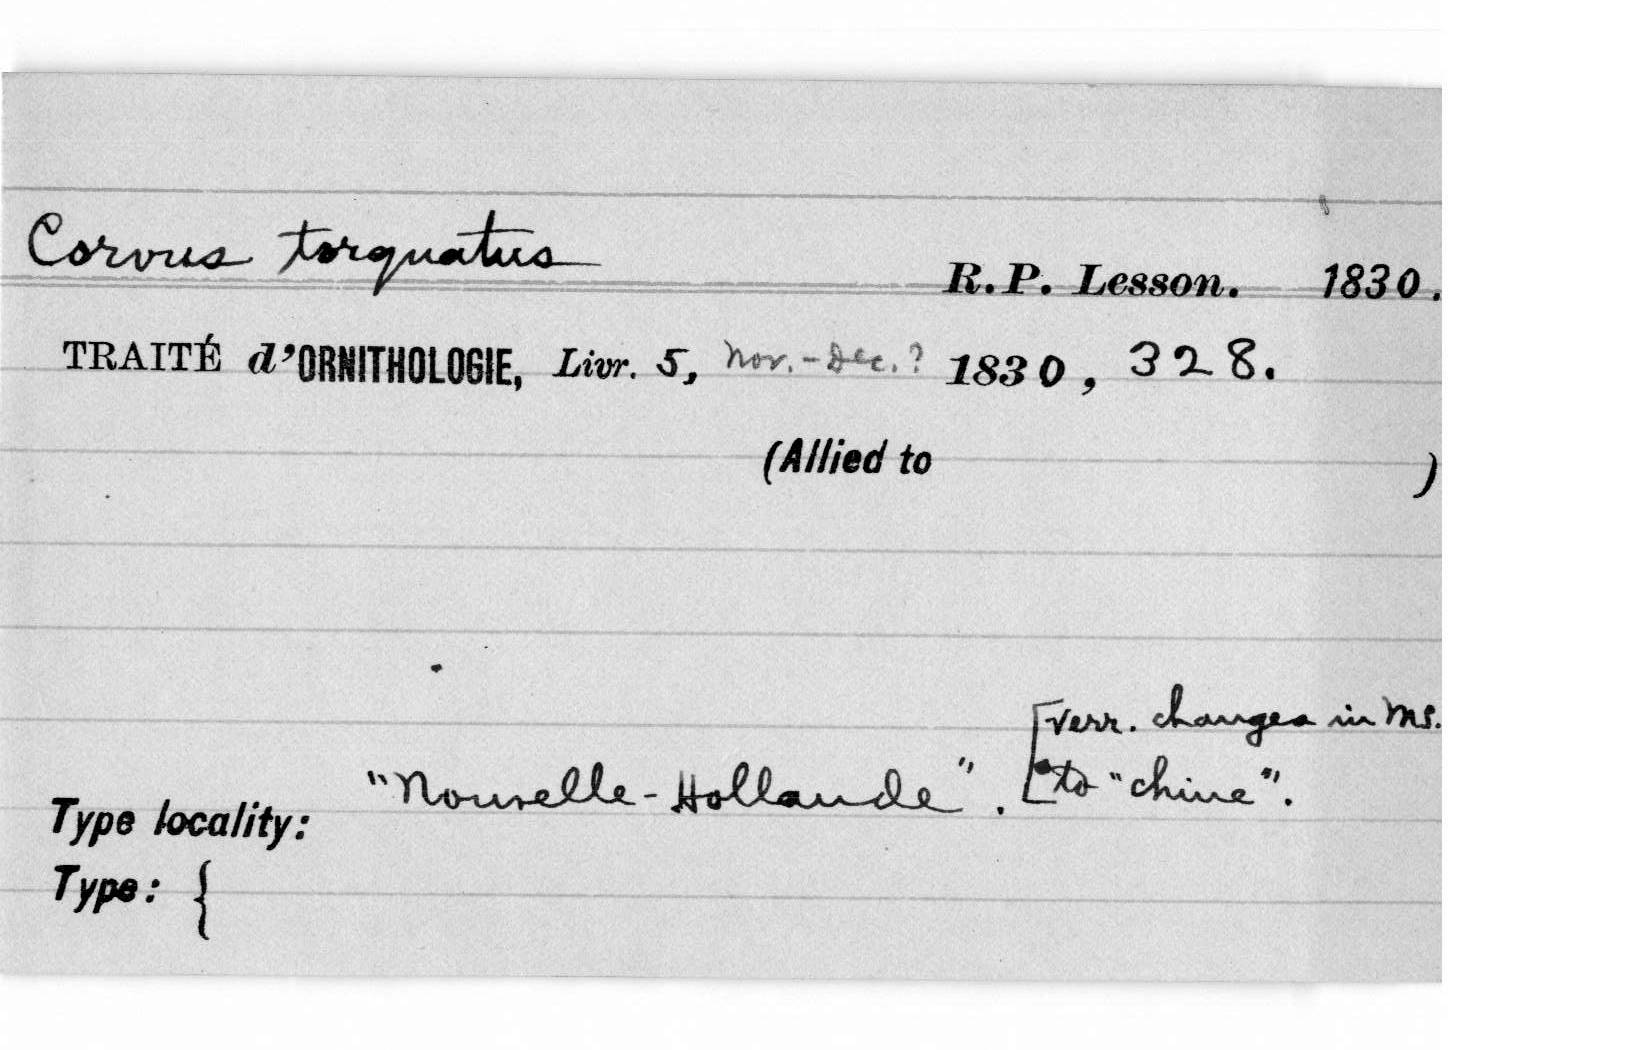 Corvus torquatus R.P. Lesson. 1830.
TRAITÉ d'ORNITHOLOGIE, Livr. 5, Nov.-Dec.? 1830, 328.
(Allied to )
[Verr. changes in Ms.
Type locality: "Nouvelle-Hollande". to "chine".
Type: {